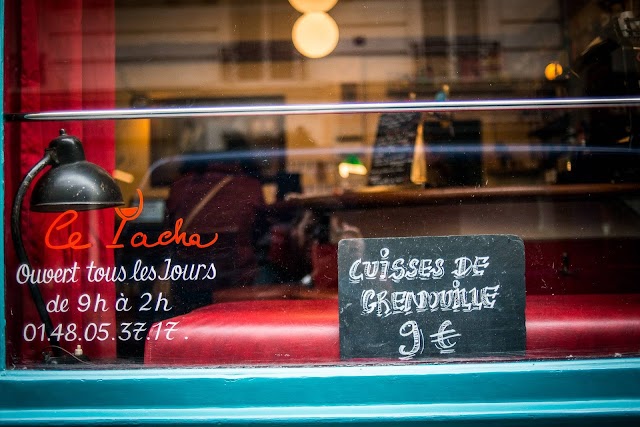 Le Pacha
Ouvert tous les Jours
de 9h à 2h
01.48.05.37.17.
CUISSES DE
GRENOUILLE
9 €